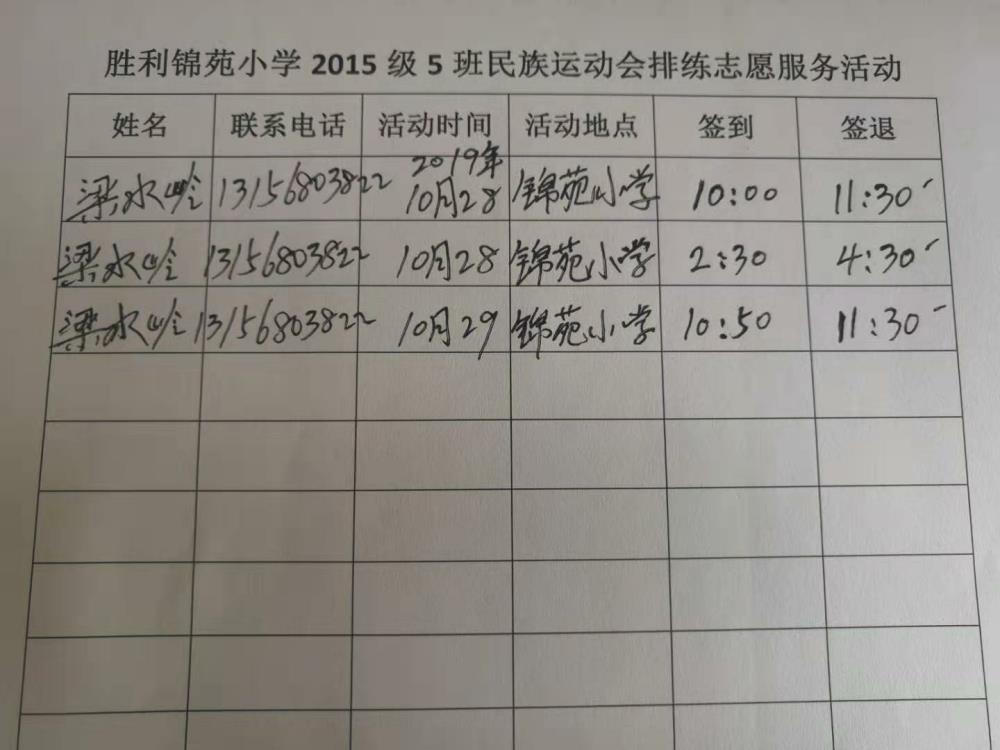 胜利锦苑小学 2015 级 5 班民族运动会排练志愿服务活动
姓名 联系电话 活动时间 活动地点 签到 签退
梁水岭 13156803822 2019年10月28 锦苑小学 10:00 11:30
梁水岭 13156803822 10月28 锦苑小学 2:30 4:30
梁水岭 13156803822 10月29 锦苑小学 10:50 11:30